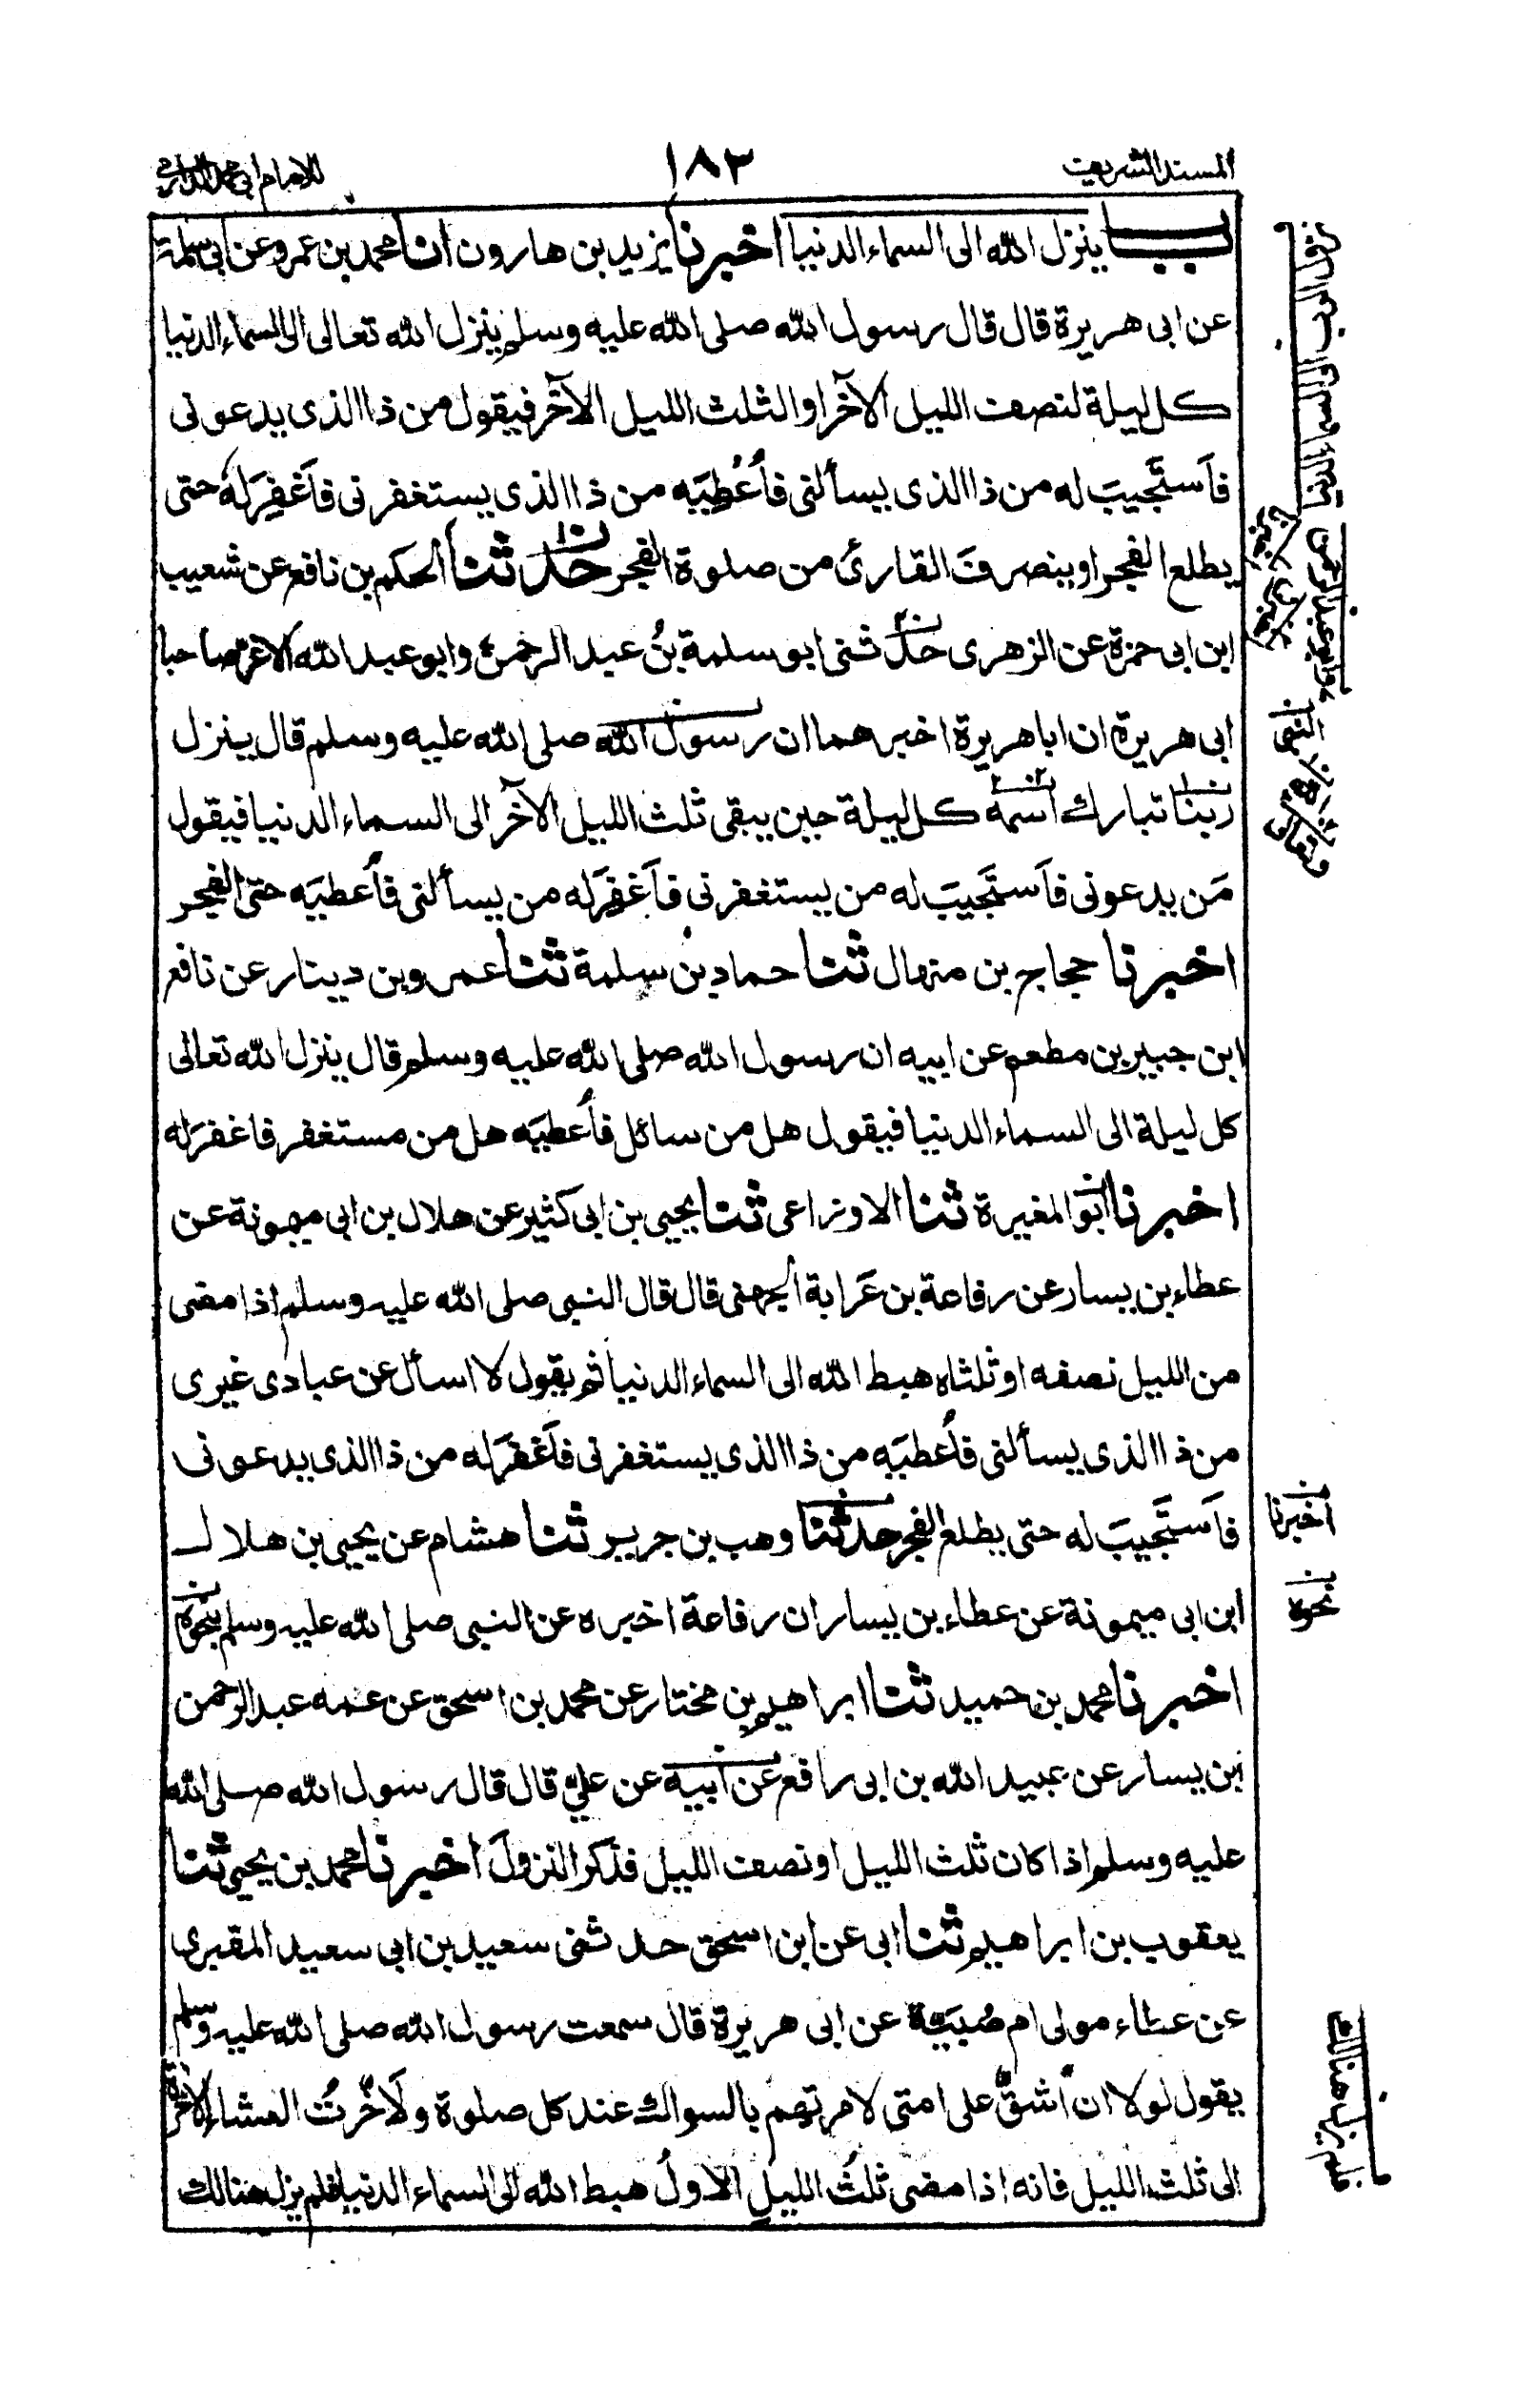 المسند الشريف
١٨٣
للامام ابي محمد الدارمي
باب ينزل الله الى السماء الدنيا اخبرنا يزيد بن هارون انا محمد بن عمرو عن ابي سلمة
عن ابى هريرة قال قال رسول الله صلى الله عليه وسلم ينزل الله تعالى الى السماء الدنيا
كل ليلة لنصف الليل الآخر او الثلث الليل الآخر فيقول من ذا الذى يدعونى
فاَستَجيبَ له من ذا الذى يسألنى فاُعْطِيَه من ذا الذى يستغفرنى فاَغفِرَ لهٗ حتى
يطلع الفجر او ينصرفَ القارئ من صلوة الفجر حدثنا الحكم بن نافع عن شعيب
ابن ابى حمزة عن الزهرى حدثنى ابو سلمة بنُ عبد الرحمن وابو عبد الله الاغر صاحبا
ابى هريرة ان ابا هريرة اخبرهما ان رسول الله صلى الله عليه وسلم قال ينزل
ربنا تبارك اسمه كل ليلة حين يبقى ثلث الليل الآخر الى السماء الدنيا فيقول
مَن يدعونى فاَستَجيبَ له من يستغفرنى فاَغفِرَ له من يسألنى فاُعطيَه حتى الفجر
اخبرنا حجاج بن منهال ثنا حماد بن سلمة ثنا عمرو بن دينار عن نافع
ابن جبير بن مطعم عن ابيه ان رسول الله صلى الله عليه وسلم قال ينزل الله تعالى
كل ليلة الى السماء الدنيا فيقول هل من سائل فاُعطيَه هل من مستغفر فاغفرَ له
اخبرنا ابو المغيرة ثنا الاوزاعى ثنا يحيى بن ابى كثير عن هلال بن ابى ميمونة عن
عطاء بن يسار عن رفاعة بن عَرابة الجهنى قال قال النبى صلى الله عليه وسلم اذا مضى
من الليل نصفه او ثلثاه هبط الله الى السماء الدنيا ثم يقول لا اسأل عن عبادى غيرى
من ذا الذى يسألنى فاُعطيَه من ذا الذى يستغفرنى فاَغفرَ له من ذا الذى يدعونى
فاَستَجيبَ له حتى يطلع الفجر حدثنا وهب بن جرير ثنا هشام عن يحيى بن هلال
ابن ابى ميمونة عن عطاء بن يسار ان رفاعة اخبره عن النبى صلى الله عليه وسلم بنحوه
اخبرنا محمد بن حميد ثنا ابراهيم بن مختار عن محمد بن اسحق عن عمه عبد الرحمن
بن يسار عن عبيد الله بن ابى رافع عن ابيه عن عليّ قال قال رسول الله صلى الله
عليه وسلم اذا كان ثلث الليل او نصف الليل فذكر النزولَ اخبرنا محمد بن يحيى ثنا
يعقوب بن ابراهيم ثنا ابى عن ابن اسحق حدثنى سعيد بن ابى سعيد المقبرى
عن عطاء مولى ام صُبَيَّة عن ابى هريرة قال سمعت رسول الله صلى الله عليه وسلم
يقول لولا ان اَشقَّ على امتى لامرتهم بالسواك عند كل صلوة ولَاَخّرتُ العشاء الآخرة
الى ثلث الليل فانه اذا مضى ثلثُ الليلِ الاولُ هبط الله الى السماء الدنيا فلم يزل هنالك
النبى
وتعالى
اخبرنا
نحوه
فلم يزل هنالك